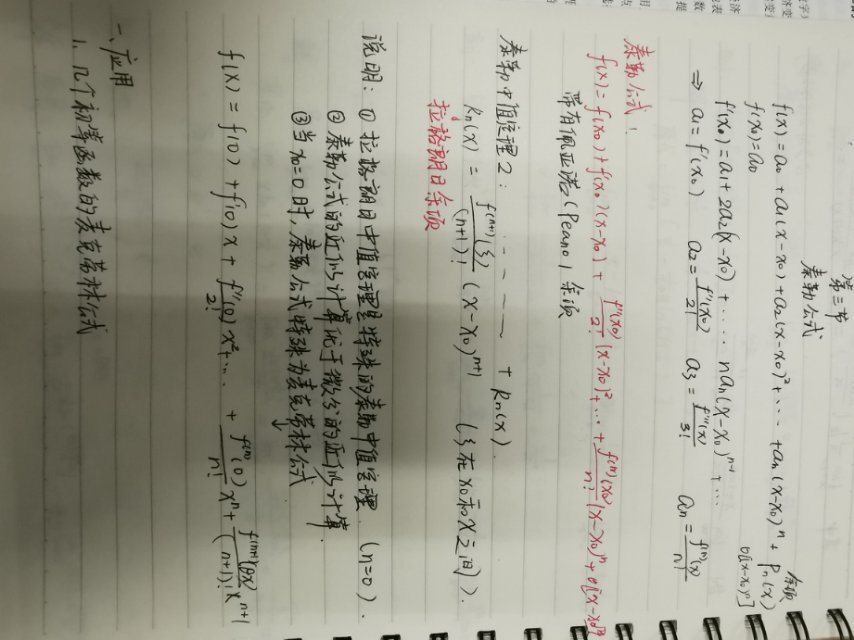 第三节
泰勒公式
f(x) = a₀ + a₁(x-x₀) + a₂(x-x₀)² + ... + aₙ(x-x₀)ⁿ + Pₙ(x) 余项
f(x₀) = a₀
o[(x-x₀)ⁿ]
f'(x₀) = a₁ + 2a₂(x-x₀) + .... naₙ(x-x₀)ⁿ⁻¹ + ...
⇒ a₁ = f'(x₀) a₂ = f''(x₀)/2! a₃ = f'''(x)/3! aₙ = f⁽ⁿ⁾(x)/n!
泰勒公式:
f(x) = f(x₀) + f'(x₀)(x-x₀) + f''(x₀)/2! (x-x₀)² + ... + f⁽ⁿ⁾(x₀)/n! (x-x₀)ⁿ + o[(x-x₀)ⁿ]
带有佩亚诺(Peano)余项
泰勒中值定理2: - - - - + Rₙ(x).
Rₙ(x) = f⁽ⁿ⁺¹⁾(ξ)/(n+1)! (x-x₀)ⁿ⁺¹ (ξ在x₀和x之间)).
拉格朗日余项
说明: ① 拉格朗日中值定理是特殊的泰勒中值定理. (n=0).
② 泰勒公式的近似计算优于微分的近似计算.
③ 当x₀=0时, 泰勒公式特殊为麦克劳林公式
↓
f(x) = f(0) + f'(0)x + f''(0)/2! x² + ... + f⁽ⁿ⁾(0)/n! xⁿ + f⁽ⁿ⁺¹⁾(θx)/(n+1)! xⁿ⁺¹
一. 应用
1. 几个初等函数的麦克劳林公式